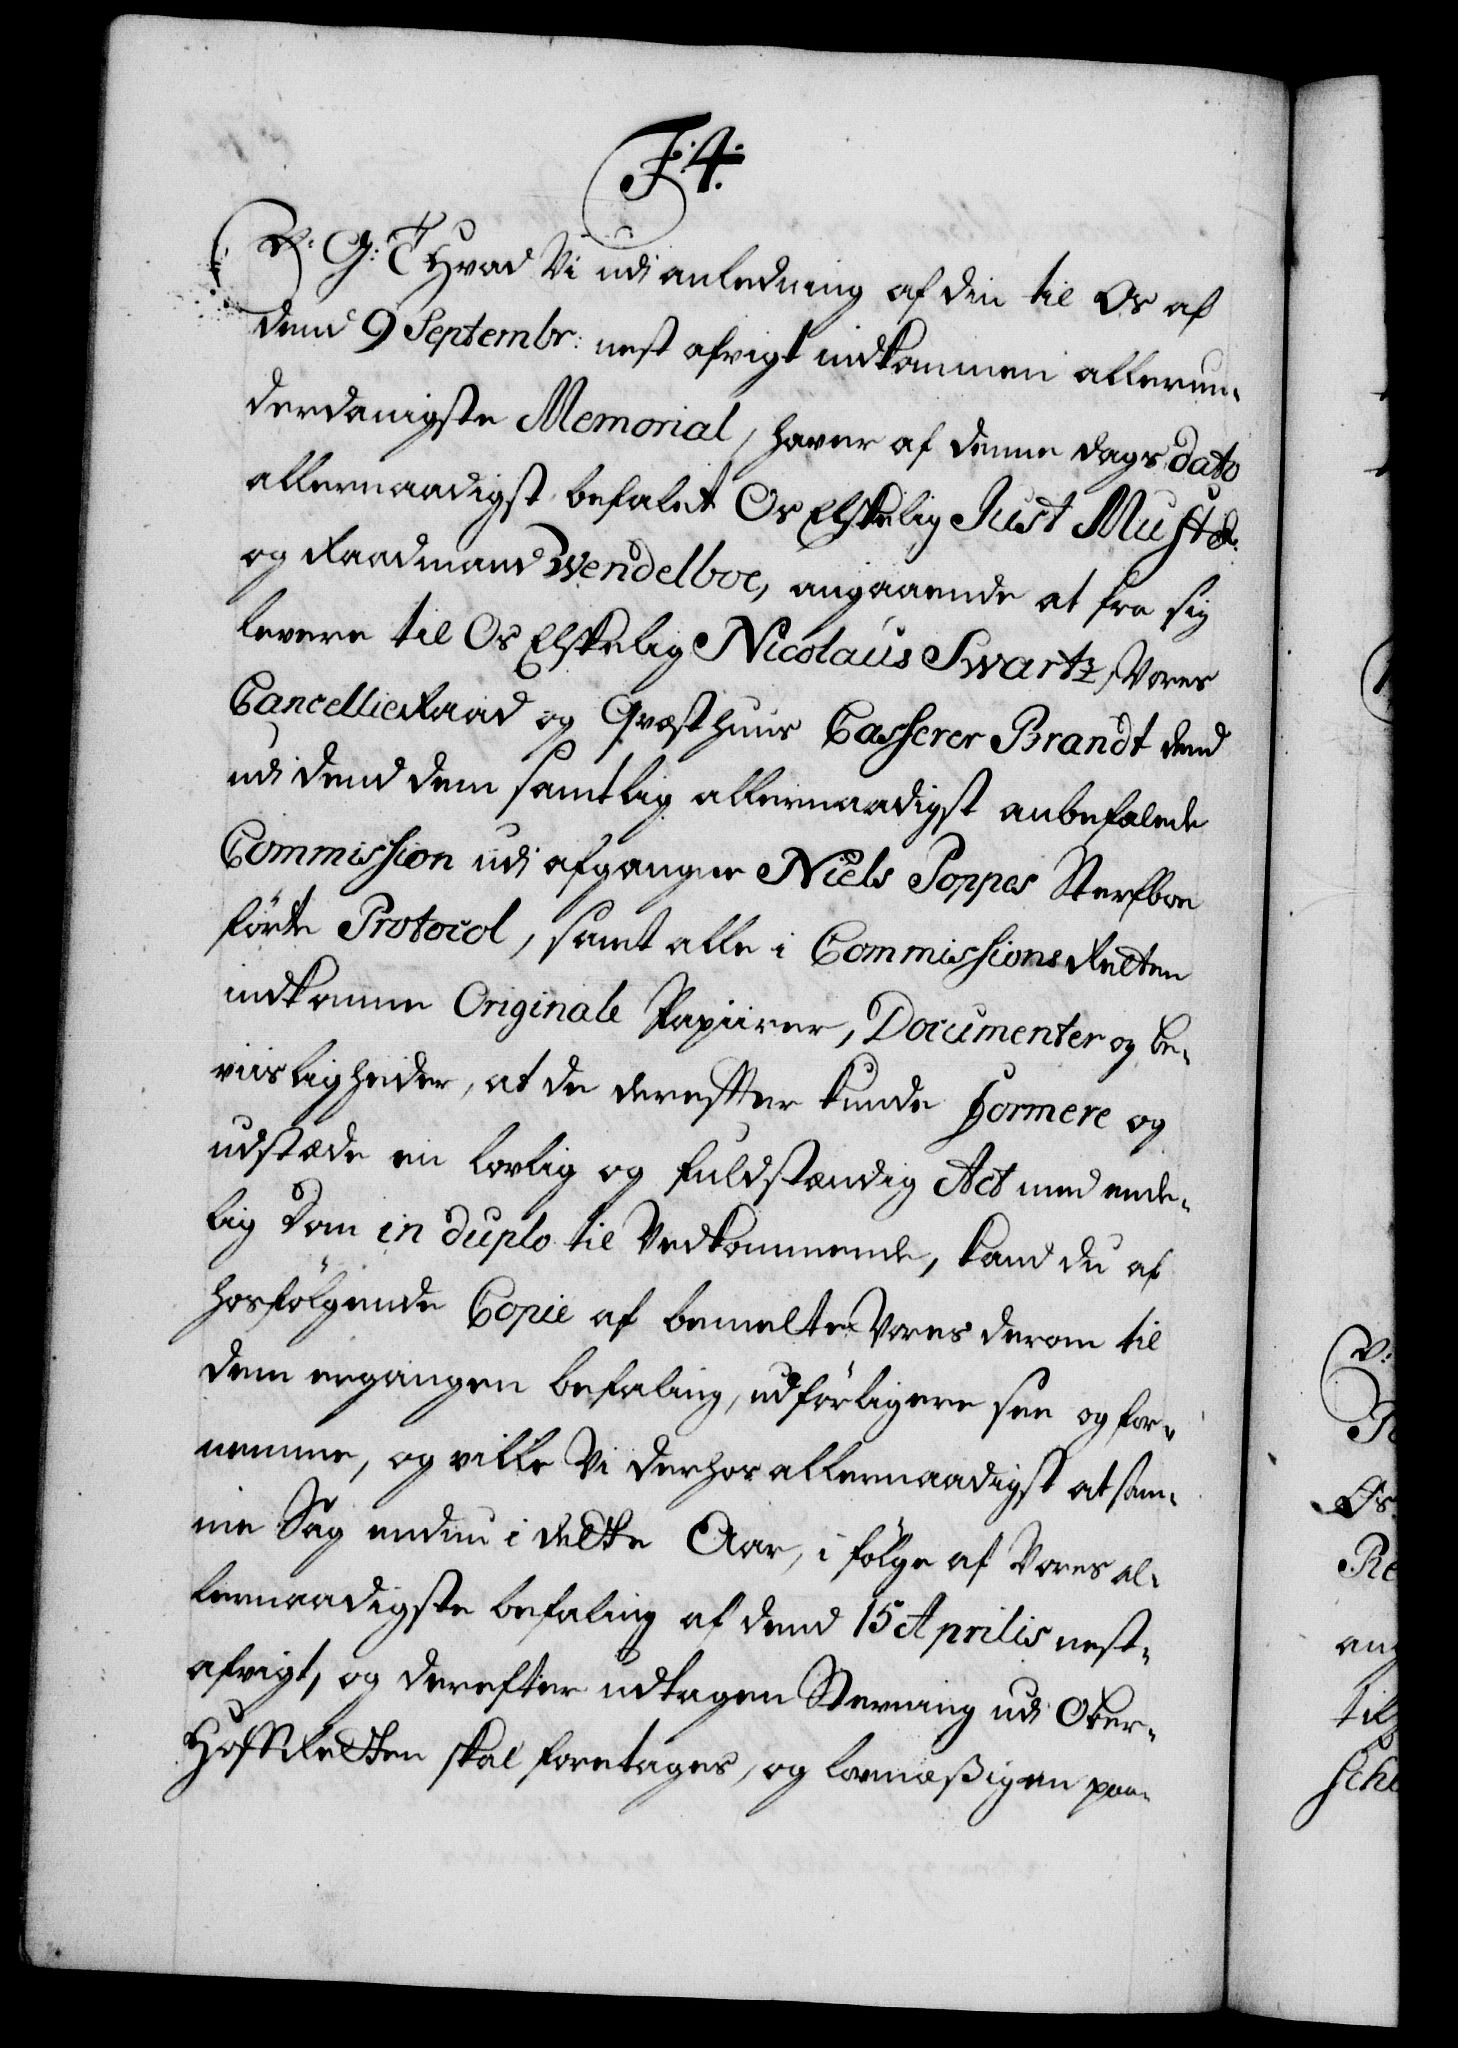 F: 4.
V: G: T Hvad Vi udi anledning af din til Os af
dend 9 Septembr: nest afvigt indkommen allerun-
derdanigste Memorial, haver af denne dags dato
allernaadigst befalet Os Elskelig Just Must
og Raadmand Wendelboe, angaaende at fra sig
levere til Os Elskelig Nicolaus Swartz, Vores
Cancellie Raad og Qvæsthuus Casserer Brandt dend
udi dend dem samtlig allernaadigst anbefalede
Commission udi afgangne Niels Poppes Sterfboe
førte Protocol, samt alle i Commissions Retten
indkomne Originale Papiirer, Documenter og be-
viisligheder, at de derefter kunde formere og
udstæde en lovlig og fuldstændig Act med ende-
lig Dom in duplo til Vedkommende, kand du af
hosfølgende Copie af bemelte Vores derom til
dem ergangen befaling, udførligere see og for-
nemme, og ville Vi derhos allernaadigst at sam-
me Sag endnu i dette Aar, i følge af Vores al-
lernaadigste befaling af dend 15 Aprilis nest-
afvigt, og derefter udtagen Stevning udi Ober-
Hoff Retten skal foretages, og lovmæßigen paa-